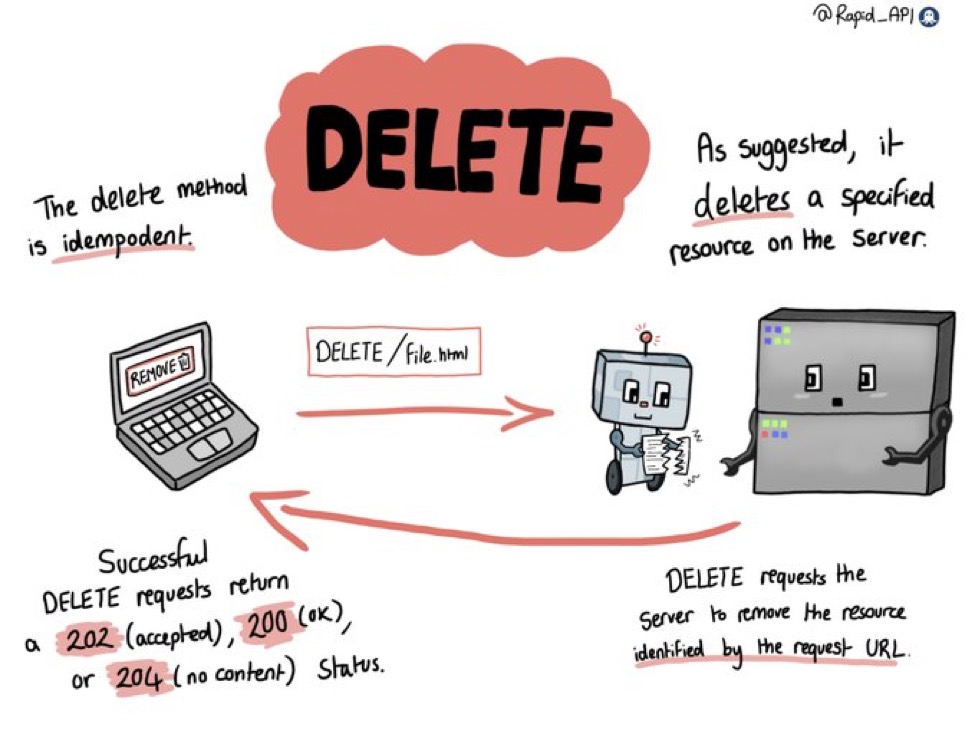 @Rapid_API
DELETE
The delete method
is idempodent.
As suggested, it
deletes a specified
resource on the Server.
REMOVE
DELETE /file.html
Successful
DELETE requests return
a 202 (accepted), 200 (OK),
or 204 (no content) Status.
DELETE requests the
Server to remove the resource
identified by the request URL.